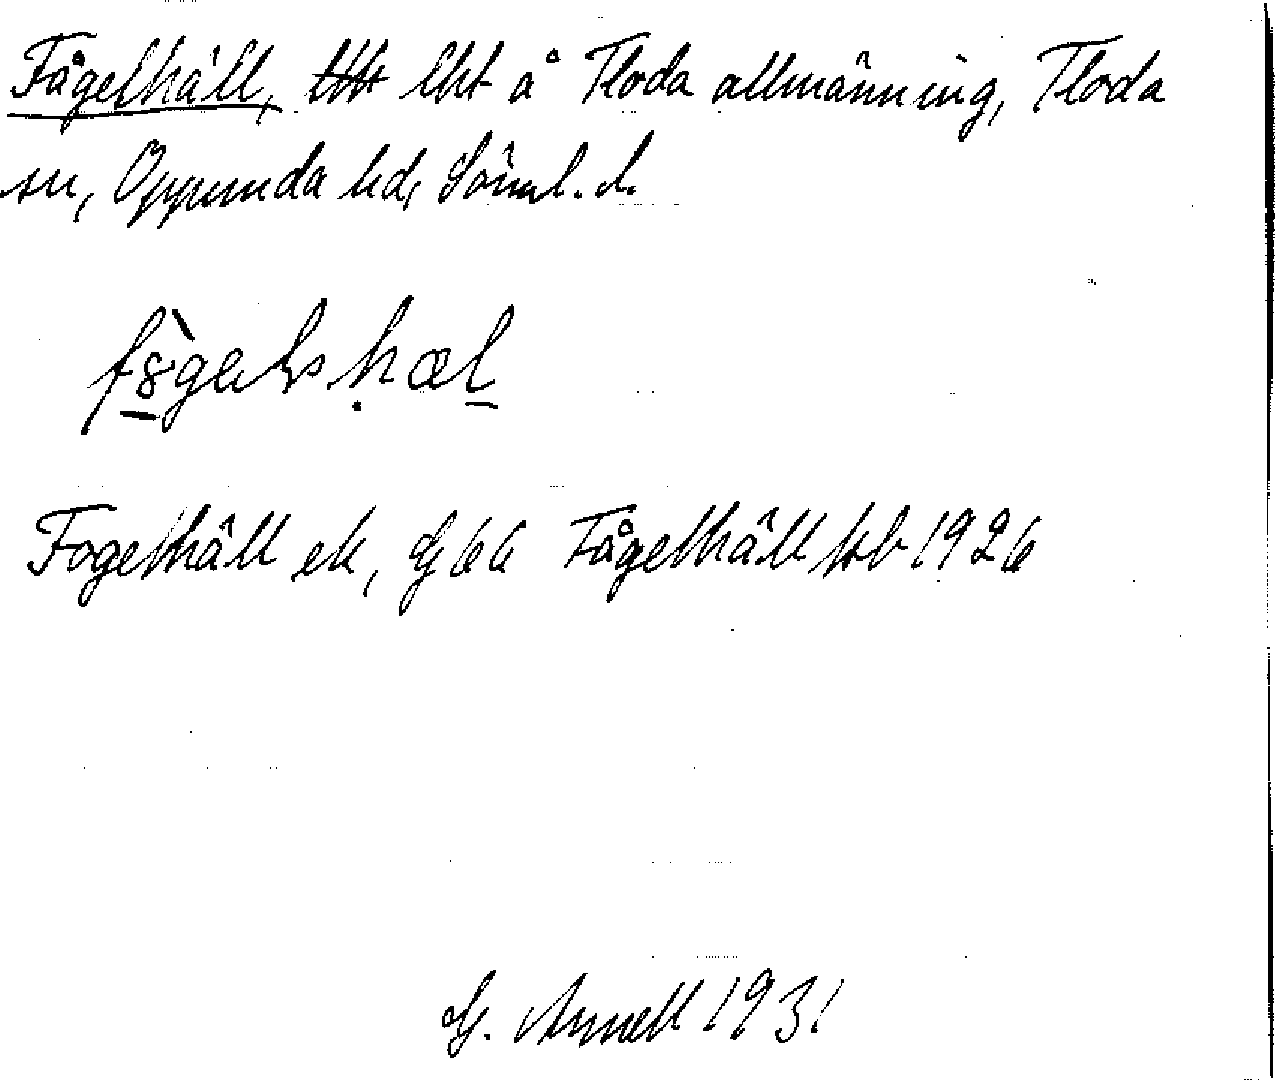 Fågelhäll, lht å Floda allmänning, Floda
sn, Oppunda hd, Söml. l.
Fogelhäll ek, G 66 Fågelhäll job 1926
G. Annell 1931